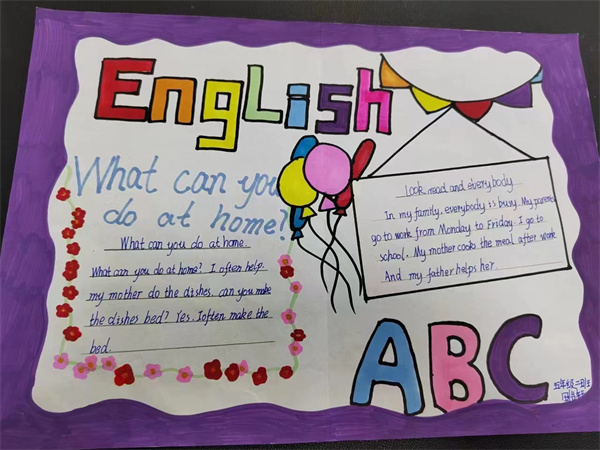 English
What can you
do at home?
What can you do at home
What can you do at home? I often help
my mother do the dishes. can you make
the dishes bed? Yes. I often make the
bed.
Look read and everybody
In my family, everybody is busy. My parents
go to work from Monday to Friday. I go to
school. My mother cooks the meal after work
And my father helps her.
ABC
五年级二班